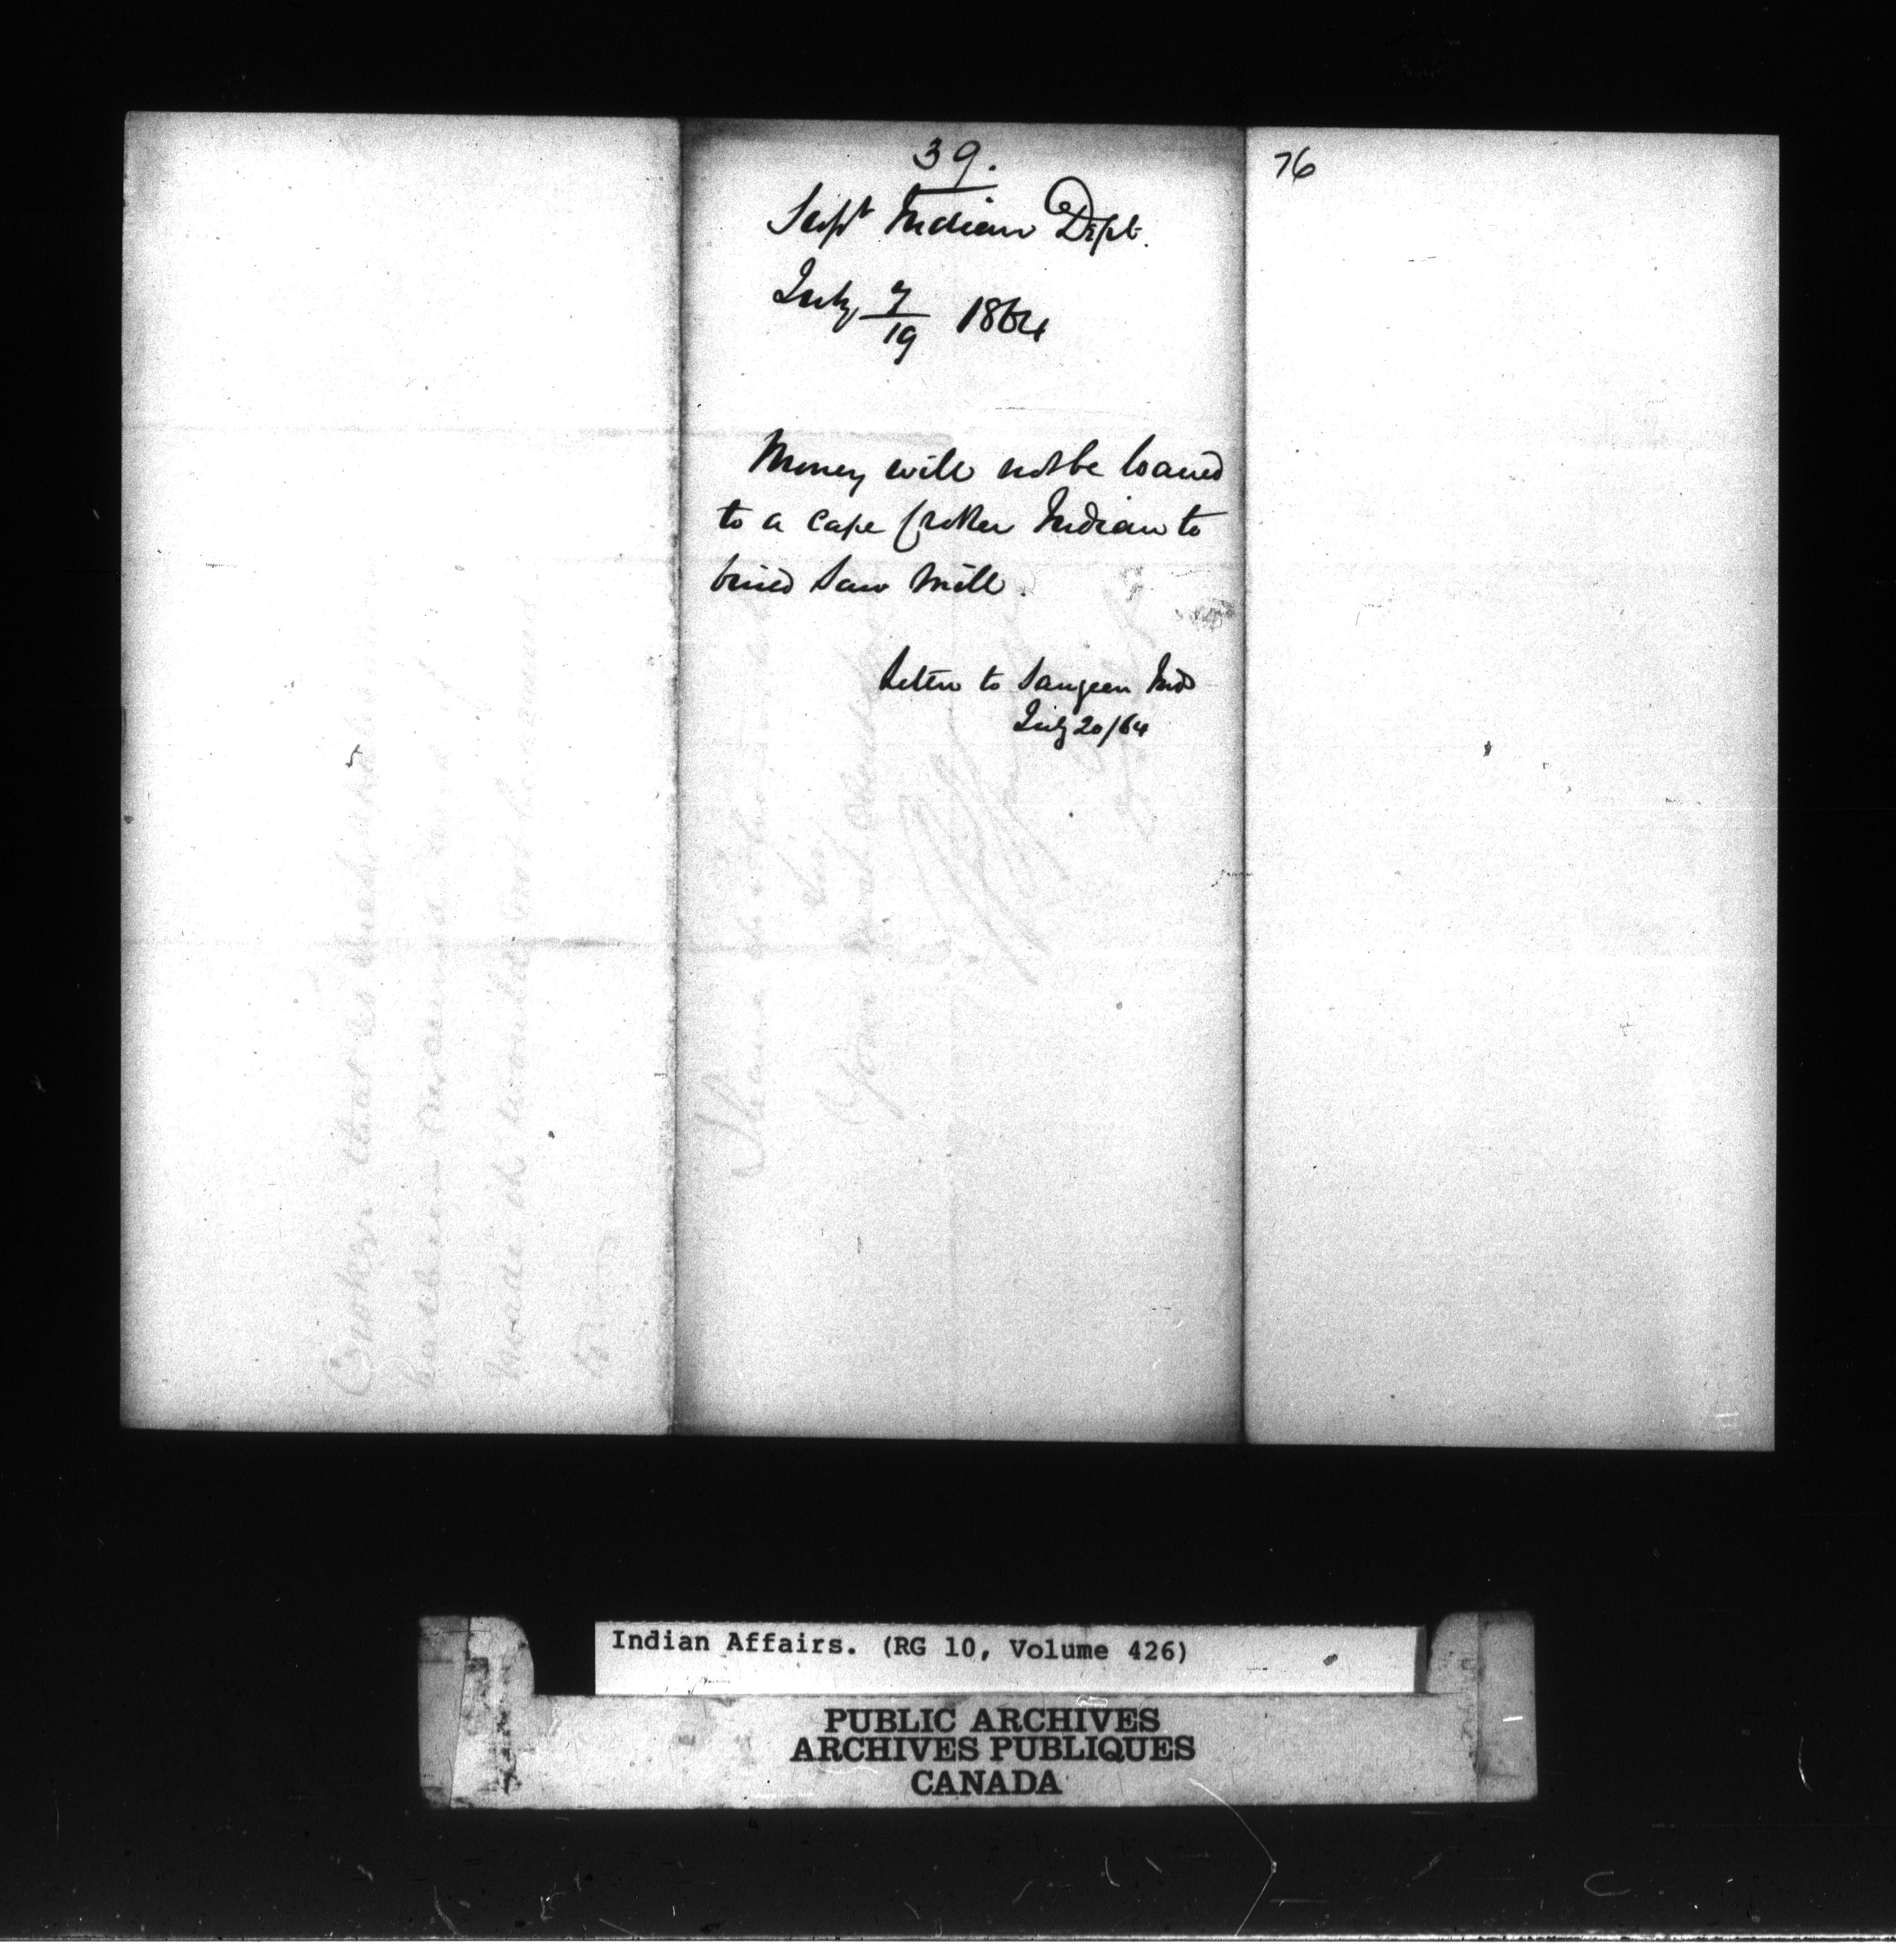 39.
Supt Indian Dept.
July 7/19 1864
Money will not be loaned
to a Cape Croker Indian to
build Saw Mill.
Letter to Saugeen Inds
July 20/64
76
Indian Affairs. (RG 10, Volume 426)
PUBLIC ARCHIVES
ARCHIVES PUBLIQUES
CANADA